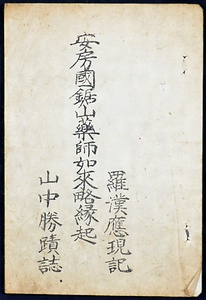 羅漢應現記
安房國鋸山藥師如來略縁起
山中勝蹟誌